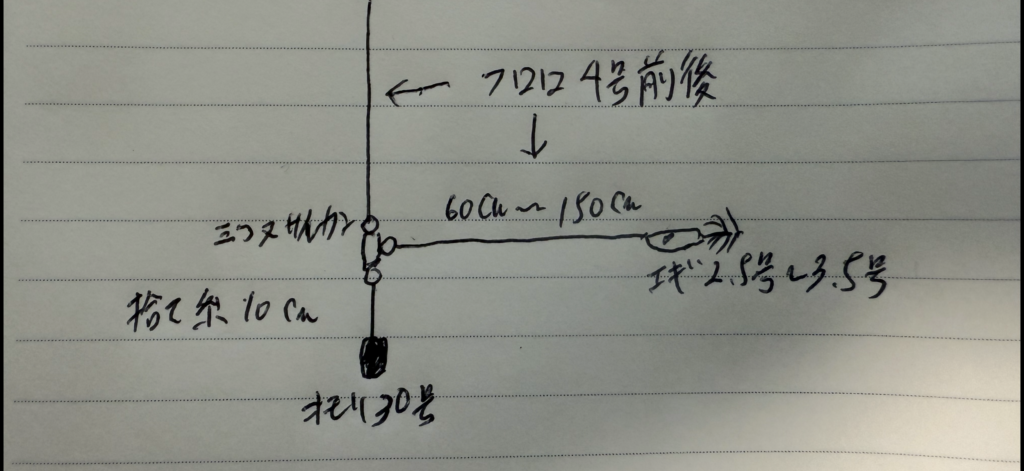 フロロ4号前後
60cm〜150cm
三つ又サルカン
エギ2.5号〜3.5号
捨て糸10cm
オモリ30号